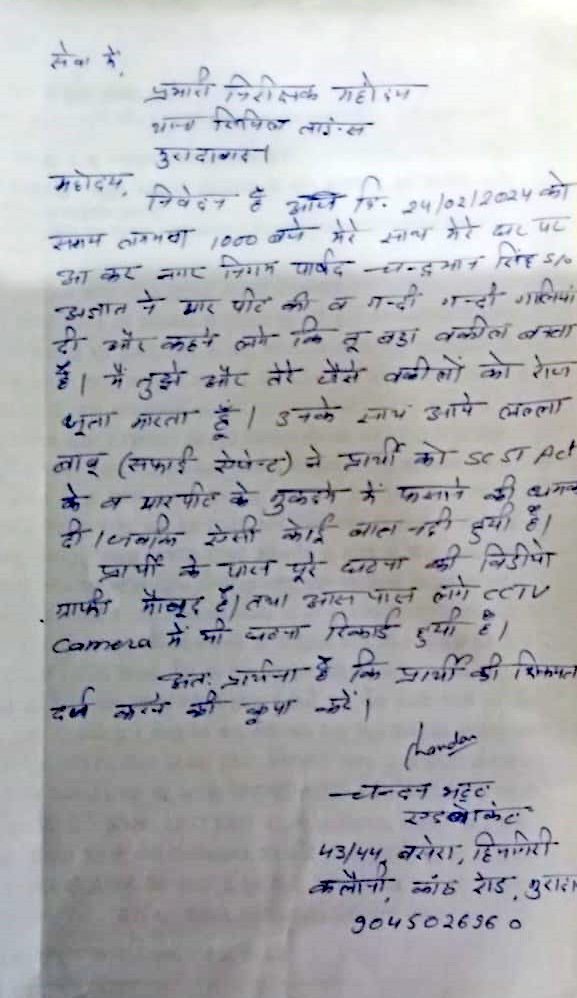 सेवा में,
प्रभारी निरीक्षक महोदय
थाना सिविल लाईन्स
मुरादाबाद।
महोदय,
निवेदन है आज दि. 24/02/2024 को
समय लगभग 1000 बजे मेरे साथ मेरे घर पर
आ कर नगर निगम पार्षद चन्द्रभान सिंह S/o
अज्ञात ने मार पीट की व गन्दी गन्दी गालियां
दी और कहने लगे कि तू बड़ा वकील बनता
है। मैं तुझे और तेरे जैसे वकीलों को रोज
जूता मारता हूँ। उनके साथ आये लल्ला
बाबू (सफाई ऐजेन्ट) ने प्रार्थी को SC ST Act
के व मारपीट के मुकदमे में फसाने की धमकी
दी। जबकि ऐसी कोई बात नही हुयी है।
प्रार्थी के पास पूरे घटना की विडीयो
ग्राफी मौजूद है। तथा आस पास लगे CCTV
camera में भी घटना रिकार्ड हुयी है।
अतः प्रार्थना है कि प्रार्थी की शिकायत
दर्ज करने की कृपा करें।
Chandan
चन्दन भट्ट
एडवोकेट
43/44, बसेरा, हिमगिरी
कलौनी, कांठ रोड, मुरादा
9045026960